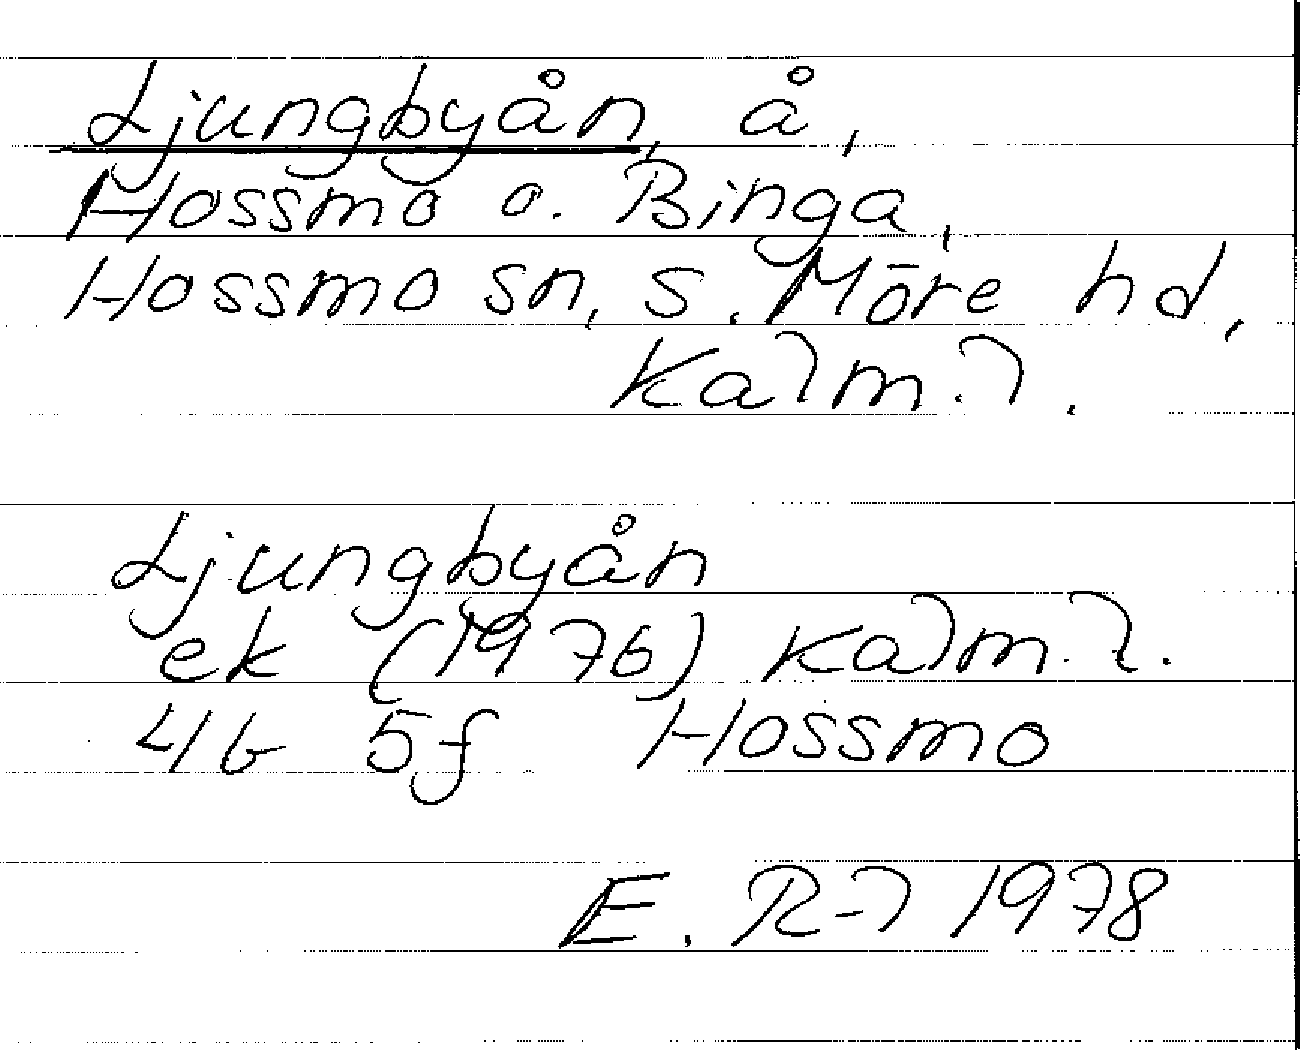 Ljungbyån, å,
Hossmo o. Binga,
Hossmo sn, S. Möre hd,
Kalm. l.
Ljungbyån
ek (1976) Kalm. l.
4G 5f Hossmo
E. R-l 1978